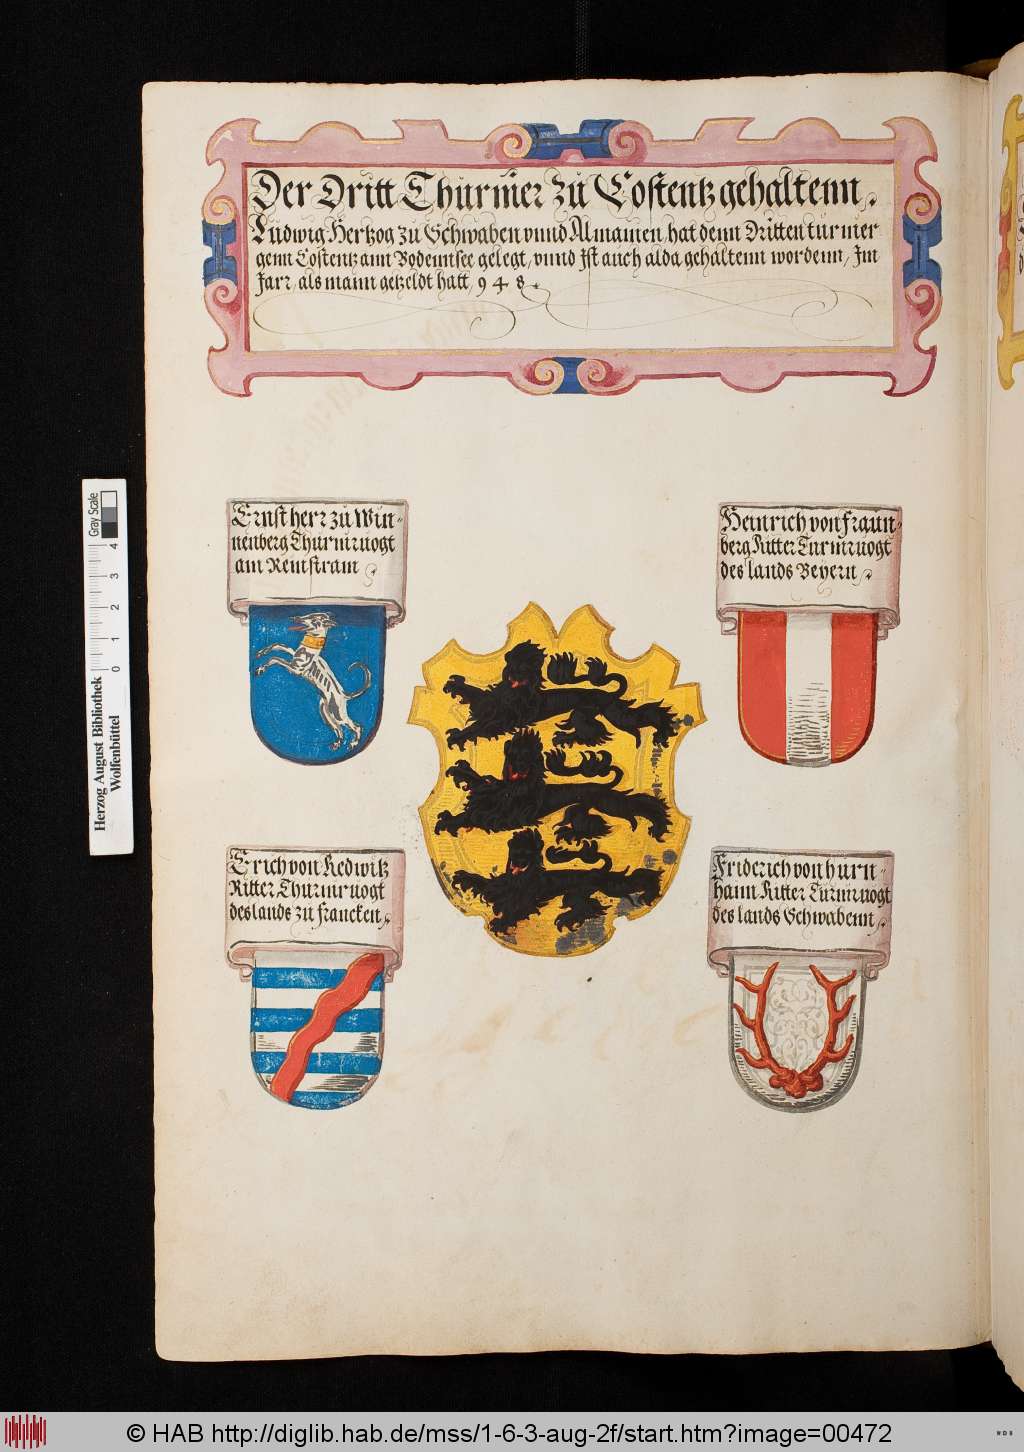 Der Dritt Thurnier zu Costentz gehaltenn.
Ludwig Hertzog zu Schwaben vnnd Almanien, hat denn Dritten turnier
genn Costentz amt Bodennsee gelegt, vnnd Ist auch alda gehaltenn wordenn, Im
Jarr, als mann getzeldt hatt, 948.
Ernst herr zu Win-
nenberg Thurnruogt
am Reinstram
Heinrich von fraun-
berg Ritter Turnruogt
des lands Beyern.
Erich von Redwitz
Ritter Thurnruogt
des lands zu francken.
Friderich von hurn-
hann Ritter Turnruogt
des lands Schwabenn.
Gray Scale
0 1 2 3 4
Herzog August Bibliothek
Wolfenbüttel
© HAB http://diglib.hab.de/mss/1-6-3-aug-2f/start.htm?image=00472